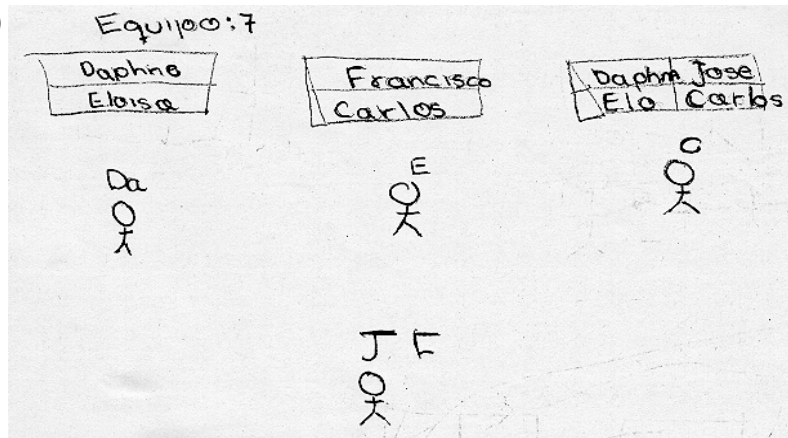 Equipo:7
Daphne
Eloisa
Francisco
Carlos
Daphn Jose
Elo Carlos
Da
E
C
J F